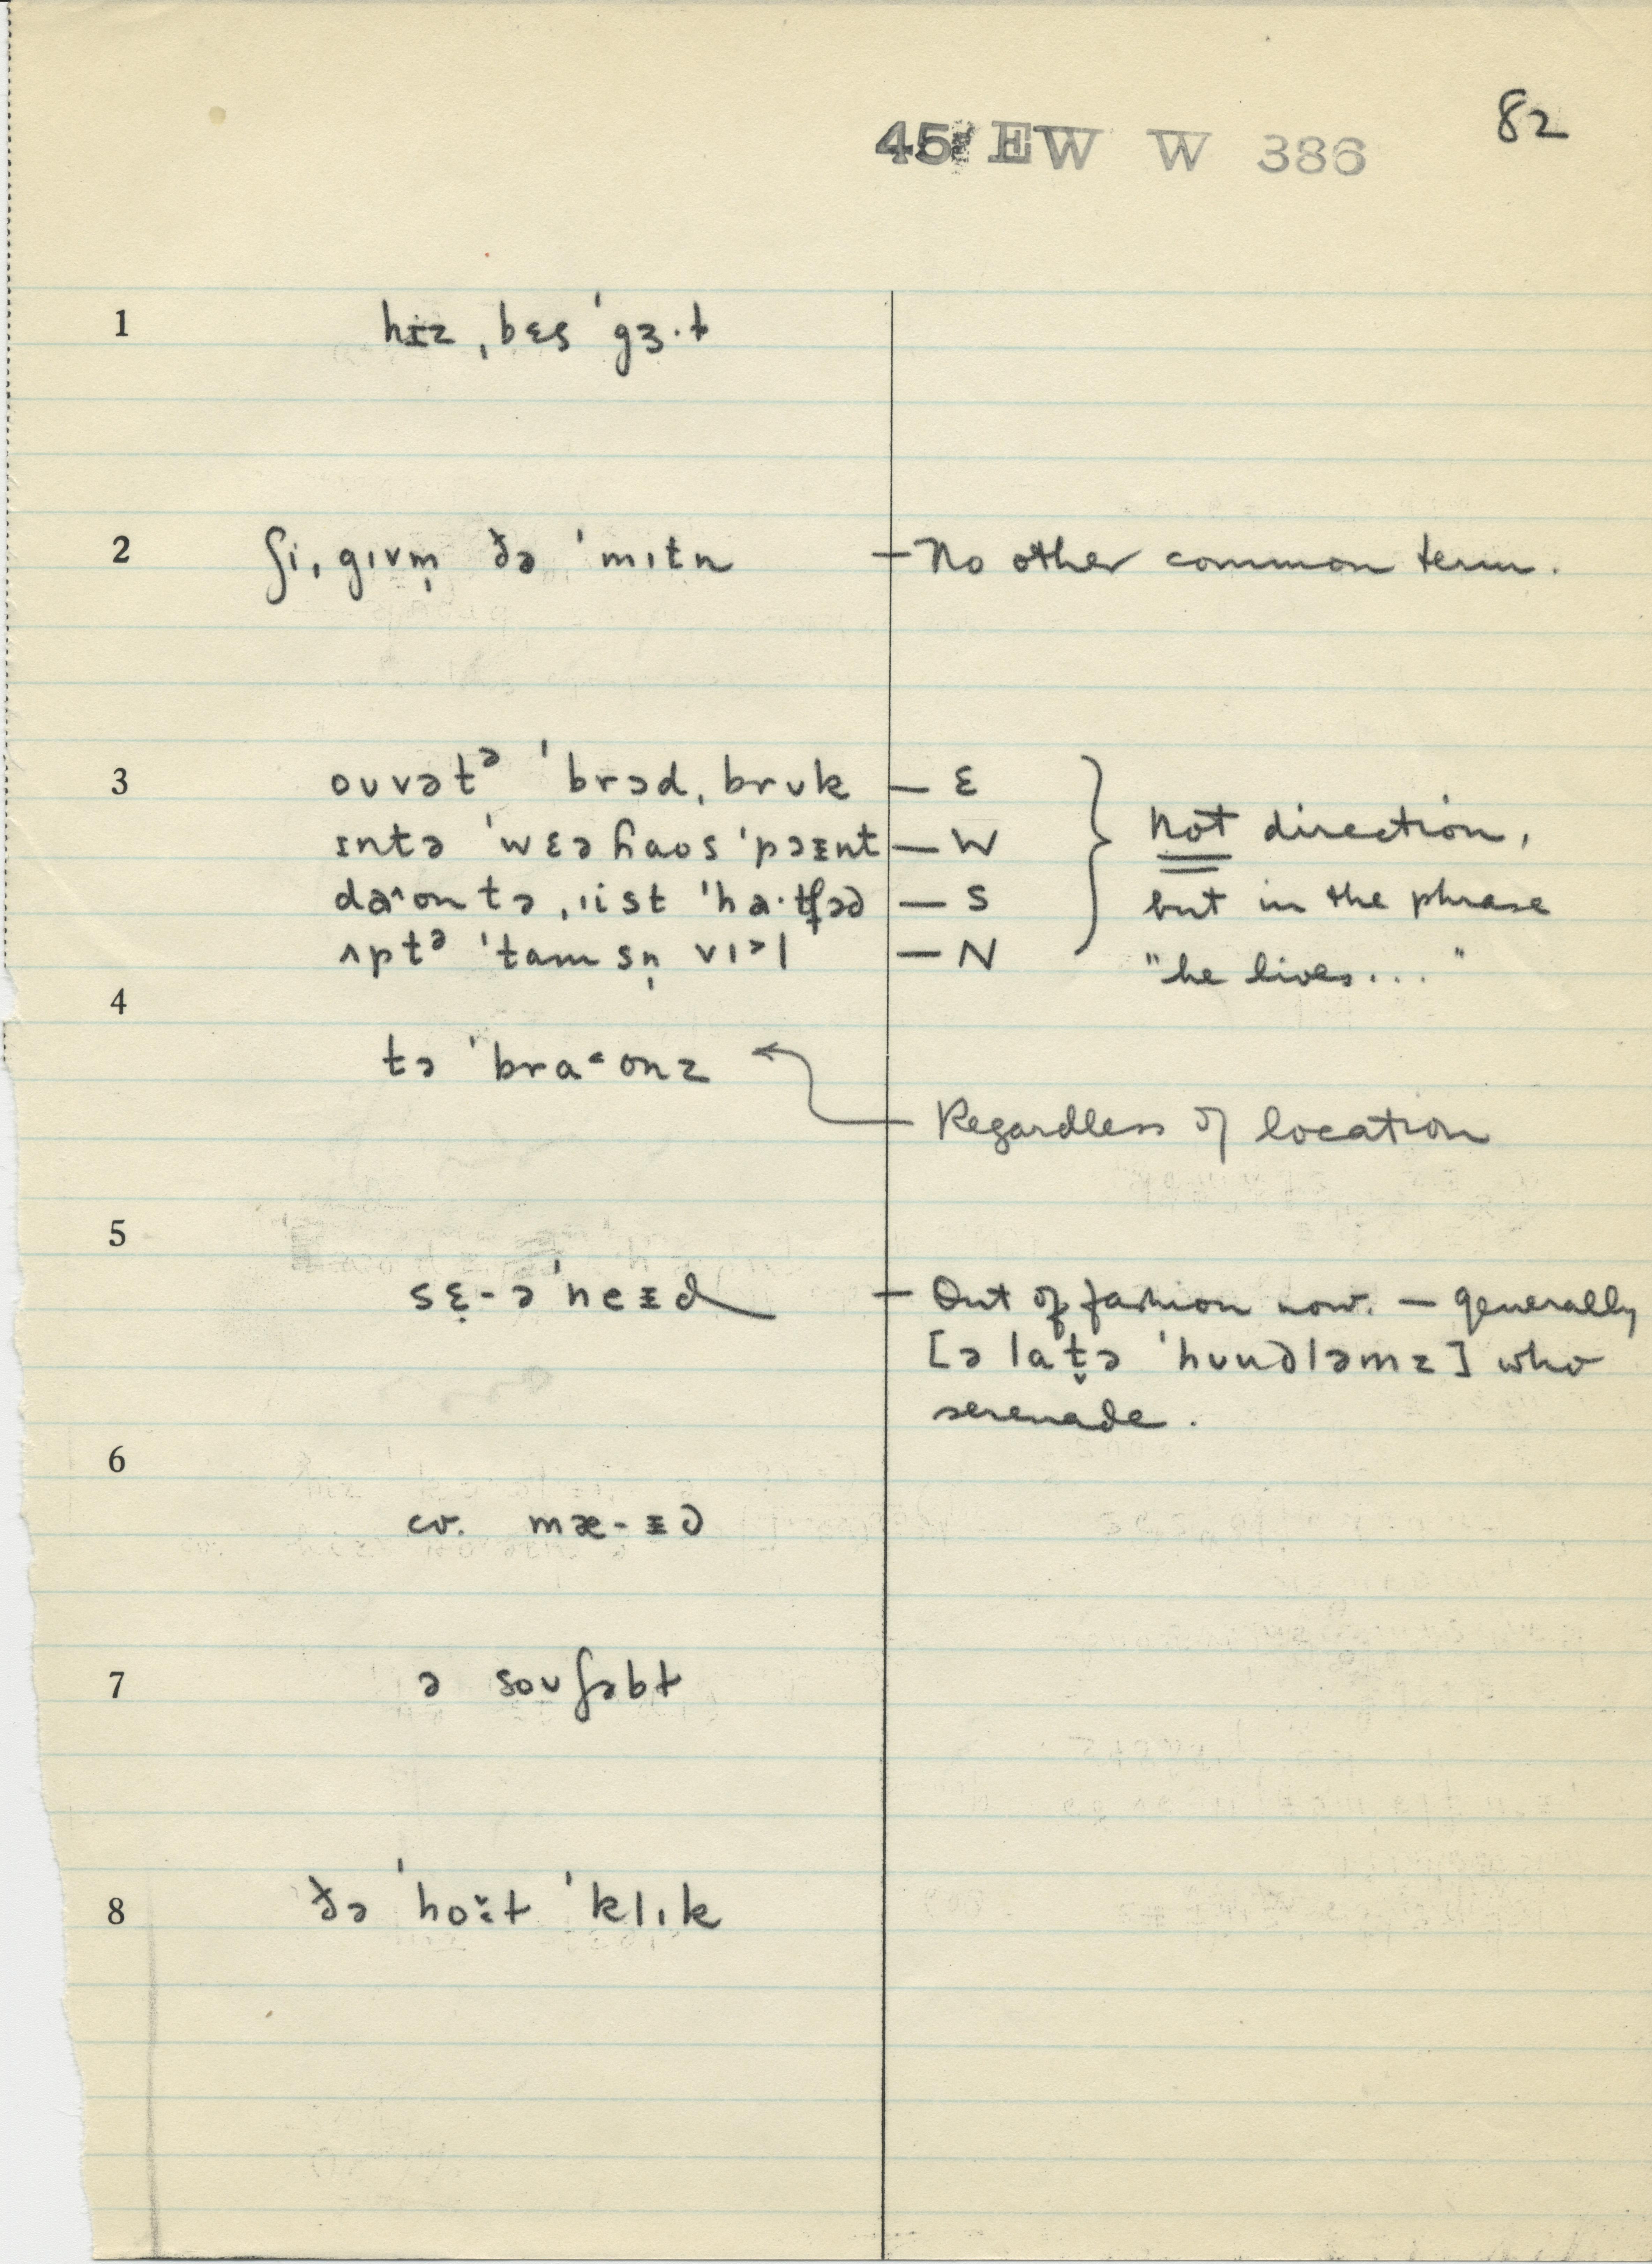 82
45 EW W 386
1 hɪz ˌbɛs ˈgɜ·ɫ
2 ʃi ˌgɪvm̩ ðə ˈmɪtn — No other common term.
3 ouvətᵊ ˈbrɔd ˌbrʊk — E
ɪntə ˈwɛəɦaos ˈpɔɪnt — W
daˆon tə ˌɹist ˈha·tʃəd — S
ʌptᵊ ˈtamsn̩ vɪ˃l — N
} Not direction,
but in the phrase
"he lives..."
4
tə ˈbraonz
Regardless of location
5
sɛ-əˈneɪd — Out of fashion now. — generally
[ə latt̬ə ˈhʊudləmz] who
serenade.
6
cv. mæ-ɪd
7 ə souʃəbɫ
8 ðə ˈhoɪt ˈklɪk